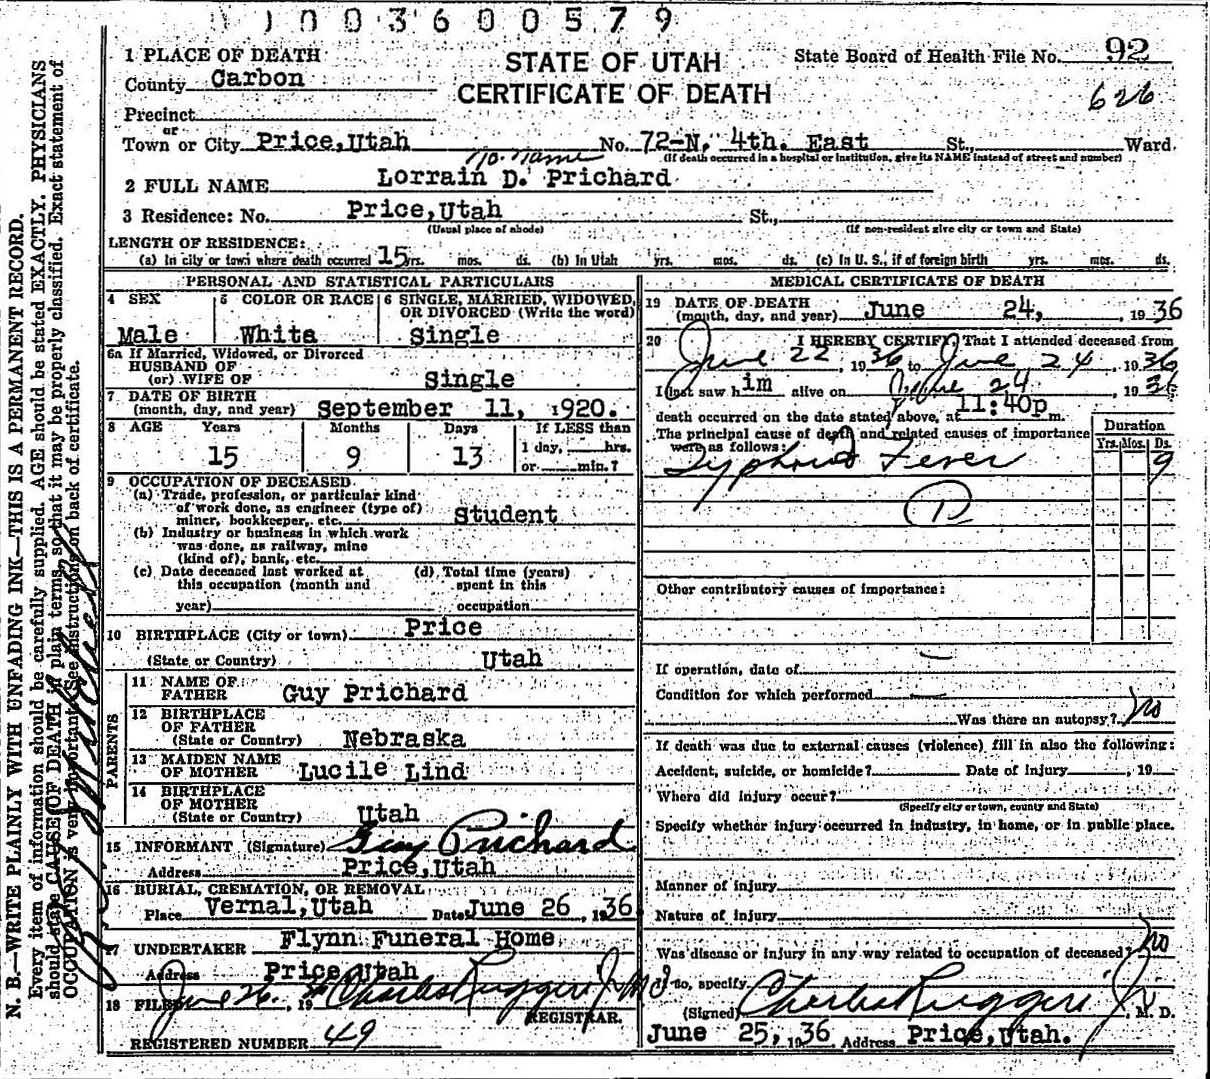 1003600579
1 PLACE OF DEATH
STATE OF UTAH
State Board of Health File No. 92
County Carbon
CERTIFICATE OF DEATH
626
Precinct
or
Town or City Price, Utah No. 72-N. 4th. East St., Ward.
No. name
(If death occurred in a hospital or institution, give its NAME instead of street and number)
2 FULL NAME Lorrain D. Prichard
3 Residence: No. Price, Utah St.,
(Usual place of abode) (If non-resident give city or town and State)
LENGTH OF RESIDENCE:
(a) In city or town where death occurred 15 yrs. mos. ds. (b) In Utah yrs. mos. ds. (c) In U. S., if of foreign birth yrs. mos. ds.
PERSONAL AND STATISTICAL PARTICULARS
4 SEX
Male
5 COLOR OR RACE
White
6 SINGLE, MARRIED, WIDOWED, OR DIVORCED (Write the word)
Single
6a If Married, Widowed, or Divorced
HUSBAND OF
(or) WIFE OF Single
7 DATE OF BIRTH
(month, day, and year) September 11, 1920.
8 AGE Years Months Days If LESS than
15 9 13 1 day, hrs.
or min.?
9 OCCUPATION OF DECEASED
(a) Trade, profession, or particular kind
of work done, as engineer (type of)
miner, bookkeeper, etc. Student
(b) Industry or business in which work
was done, as railway, mine
(kind of), bank, etc.
(c) Date deceased last worked at
this occupation (month and
year)
(d) Total time (years)
spent in this
occupation
10 BIRTHPLACE (City or town) Price
(State or Country) Utah
PARENTS
11 NAME OF
FATHER Guy Prichard
12 BIRTHPLACE
OF FATHER
(State or Country) Nebraska
13 MAIDEN NAME
OF MOTHER Lucile Lind
14 BIRTHPLACE
OF MOTHER
(State or Country) Utah
15 INFORMANT (Signature) Guy Prichard
Address Price, Utah
16 BURIAL, CREMATION, OR REMOVAL
Place Vernal, Utah Date June 26, 1936
17 UNDERTAKER Flynn Funeral Home
Address Price, Utah
18 FILED June 26, 1936 Charles Ruggeri Jr MD
REGISTRAR.
REGISTERED NUMBER 49
MEDICAL CERTIFICATE OF DEATH
19 DATE OF DEATH
(month, day, and year) June 24, 1936
20 I HEREBY CERTIFY, That I attended deceased from
June 22, 1936 to June 24, 1936
I last saw him alive on June 24, 1936
death occurred on the date stated above, at 11:40p m.
The principal cause of death and related causes of importance
were as follows:
Duration
Yrs. Mos. Ds.
Typhoid Fever 9
1
Other contributory causes of importance:
If operation, date of —
Condition for which performed —
Was there an autopsy? No
If death was due to external causes (violence) fill in also the following:
Accident, suicide, or homicide? Date of injury , 19
Where did injury occur?
(Specify city or town, county and State)
Specify whether injury occurred in industry, in home, or in public place.
Manner of injury
Nature of injury
Was disease or injury in any way related to occupation of deceased? No
If so, specify
(Signed) Charles Ruggeri Jr, M. D.
June 25, 1936 Address Price, Utah.
N. B.—WRITE PLAINLY WITH UNFADING INK—THIS IS A PERMANENT RECORD.
Every item of information should be carefully supplied. AGE should be stated EXACTLY. PHYSICIANS
should state CAUSE OF DEATH in plain terms, so that it may be properly classified. Exact statement of
OCCUPATION is very important. See instructions on back of certificate.